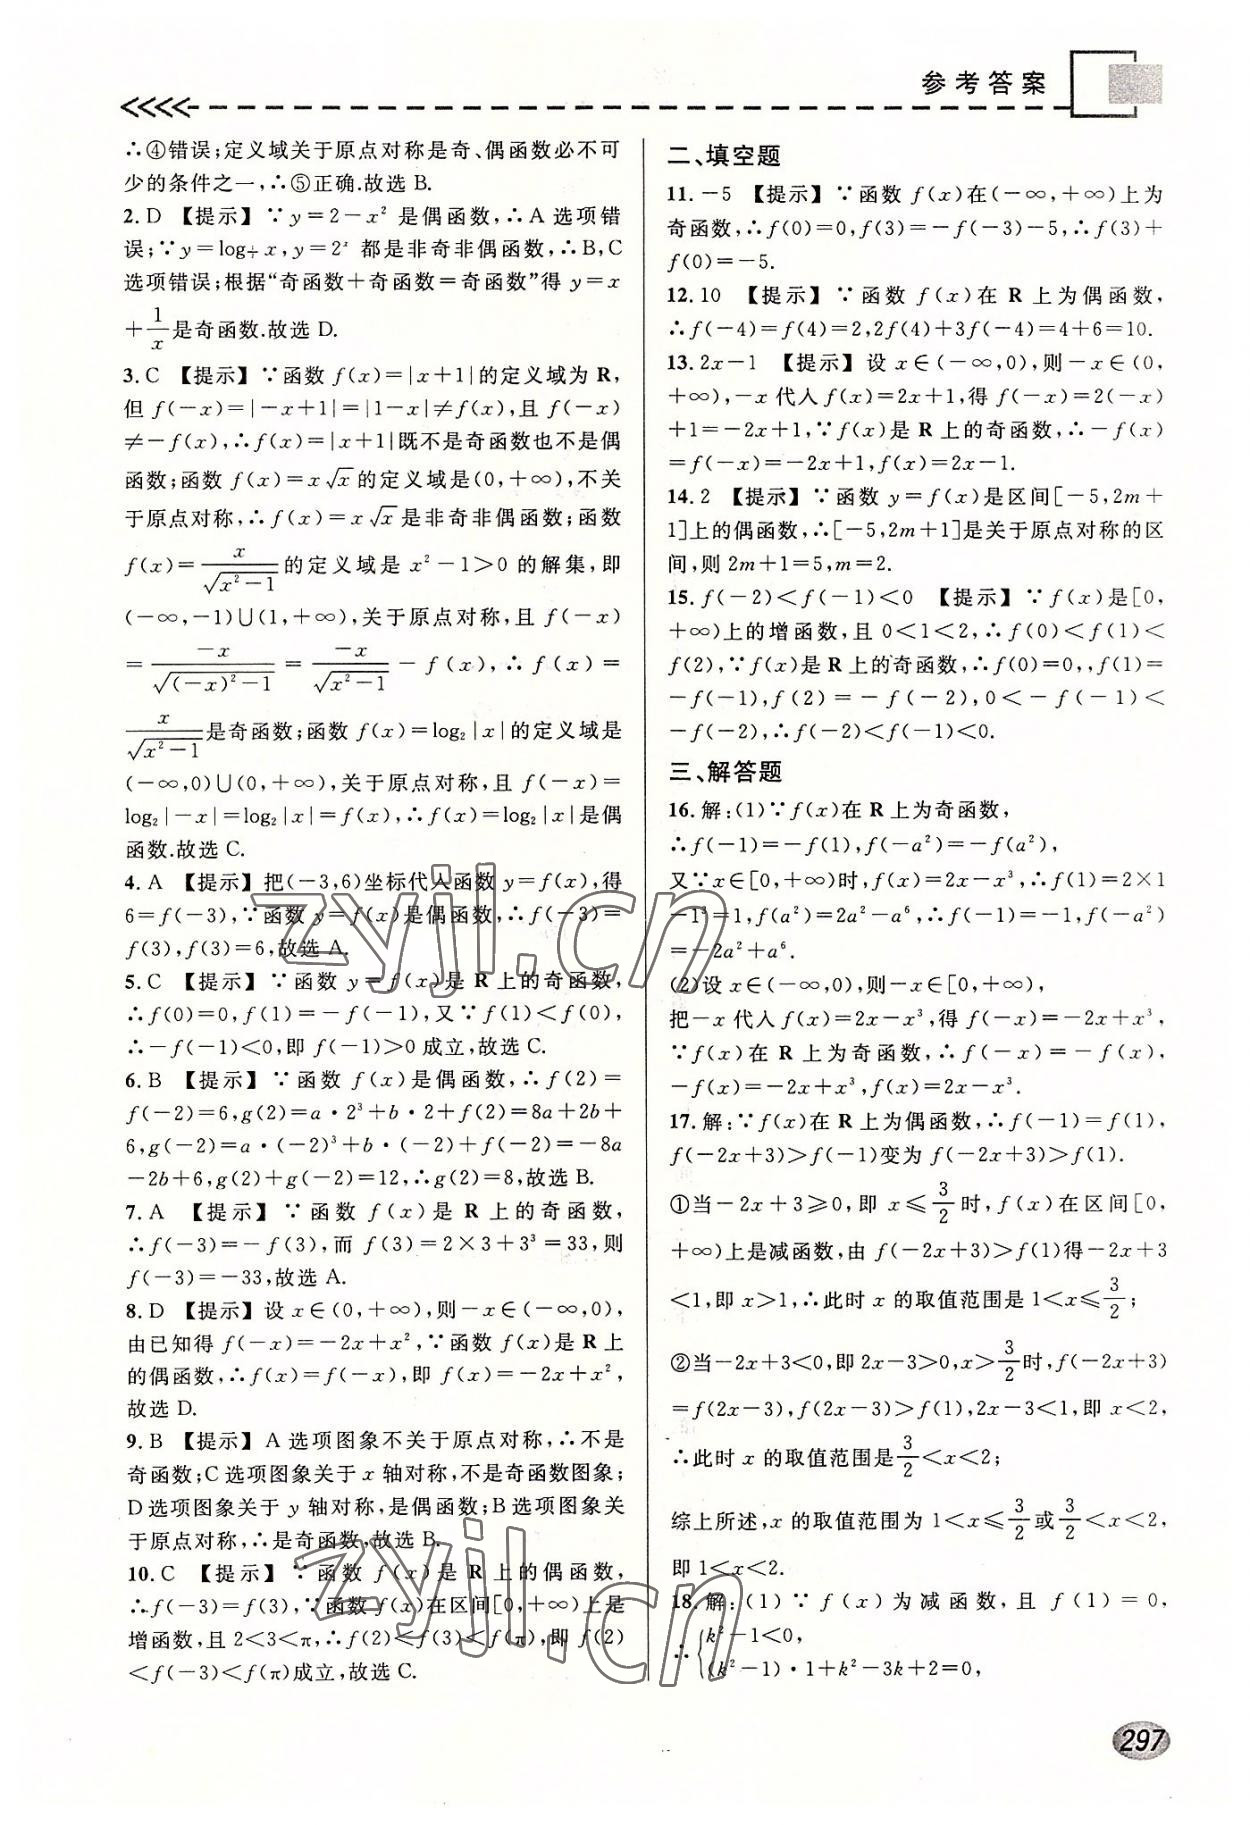 参考答案
∴④错误;定义域关于原点对称是奇、偶函数必不可
少的条件之一,∴⑤正确.故选 B.
2. D 【提示】∵y=2-x² 是偶函数,∴A 选项错
误;∵y=log x,y=2ˣ 都是非奇非偶函数,∴B,C
选项错误;根据“奇函数+奇函数=奇函数”得 y=x
+1/x是奇函数.故选 D.
3. C 【提示】∵函数 f(x)=|x+1|的定义域为 R,
但 f(-x)=|-x+1|=|1-x|≠f(x),且 f(-x)
≠-f(x),∴f(x)=|x+1|既不是奇函数也不是偶
函数;函数 f(x)=x√x 的定义域是(0,+∞),不关
于原点对称,∴f(x)=x√x 是非奇非偶函数;函数
f(x)=x/√(x²-1)的定义域是 x²-1>0 的解集,即
(-∞,-1)∪(1,+∞),关于原点对称,且 f(-x)
=-x/√((-x)²-1)=-x/√(x²-1)-f(x),∴f(x)=
x/√(x²-1)是奇函数;函数 f(x)=log₂|x|的定义域是
(-∞,0)∪(0,+∞),关于原点对称,且 f(-x)=
log₂|-x|=log₂|x|=f(x),∴f(x)=log₂|x|是偶
函数.故选 C.
4. A 【提示】把(-3,6)坐标代入函数 y=f(x),得
6=f(-3),∵函数 y=f(x)是偶函数,∴f(-3)=
f(3),f(3)=6,故选 A.
5. C 【提示】∵函数 y=f(x)是 R 上的奇函数,
∴f(0)=0,f(1)=-f(-1),又∵f(1)<f(0),
∴-f(-1)<0,即 f(-1)>0 成立,故选 C.
6. B 【提示】∵函数 f(x)是偶函数,∴f(2)=
f(-2)=6,g(2)=a·2³+b·2+f(2)=8a+2b+
6,g(-2)=a·(-2)³+b·(-2)+f(-2)=-8a
-2b+6,g(2)+g(-2)=12,∴g(2)=8,故选 B.
7. A 【提示】∵函数 f(x)是 R 上的奇函数,
∴f(-3)=-f(3),而 f(3)=2×3+3³=33,则
f(-3)=-33,故选 A.
8. D 【提示】设 x∈(0,+∞),则-x∈(-∞,0),
由已知得 f(-x)=-2x+x²,∵函数 f(x)是 R 上
的偶函数,∴f(x)=f(-x),即 f(x)=-2x+x²,
故选 D.
9. B 【提示】A 选项图象不关于原点对称,∴不是
奇函数;C 选项图象关于 x 轴对称,不是奇函数图象;
D 选项图象关于 y 轴对称,是偶函数;B 选项图象关
于原点对称,∴是奇函数,故选 B.
10. C 【提示】∵函数 f(x)是 R 上的偶函数,
∴f(-3)=f(3),∵函数 f(x)在区间[0,+∞)上是
增函数,且 2<3<π,∴f(2)<f(3)<f(π),即 f(2)
<f(-3)<f(π)成立,故选 C.
二、填空题
11. -5 【提示】∵函数 f(x)在(-∞,+∞)上为
奇函数,∴f(0)=0,f(3)=-f(-3)-5,∴f(3)+
f(0)=-5.
12. 10 【提示】∵函数 f(x)在 R 上为偶函数,
∴f(-4)=f(4)=2,2f(4)+3f(-4)=4+6=10.
13. 2x-1 【提示】设 x∈(-∞,0),则-x∈(0,
+∞),-x 代入 f(x)=2x+1,得 f(-x)=2(-x)
+1=-2x+1,∵f(x)是 R 上的奇函数,∴-f(x)
=f(-x)=-2x+1,f(x)=2x-1.
14. 2 【提示】∵函数 y=f(x)是区间[-5,2m+
1]上的偶函数,∴[-5,2m+1]是关于原点对称的区
间,则 2m+1=5,m=2.
15. f(-2)<f(-1)<0 【提示】∵f(x)是[0,
+∞)上的增函数,且 0<1<2,∴f(0)<f(1)<
f(2),∵f(x)是 R 上的奇函数,∴f(0)=0,,f(1)=
-f(-1),f(2)=-f(-2),0<-f(-1)<
-f(-2),∴f(-2)<f(-1)<0.
三、解答题
16. 解:(1)∵f(x)在 R 上为奇函数,
∴f(-1)=-f(1),f(-a²)=-f(a²),
又∵x∈[0,+∞)时,f(x)=2x-x³,∴f(1)=2×1
-1³=1,f(a²)=2a²-a⁶,∴f(-1)=-1,f(-a²)
=-2a²+a⁶.
(2)设 x∈(-∞,0),则-x∈[0,+∞),
把-x 代入 f(x)=2x-x³,得 f(-x)=-2x+x³,
∵f(x)在 R 上为奇函数,∴f(-x)=-f(x),
-f(x)=-2x+x³,f(x)=2x-x³.
17. 解:∵f(x)在 R 上为偶函数,∴f(-1)=f(1),
f(-2x+3)>f(-1)变为 f(-2x+3)>f(1).
①当-2x+3≥0,即 x≤3/2时,f(x)在区间[0,
+∞)上是减函数,由 f(-2x+3)>f(1)得-2x+3
<1,即 x>1,∴此时 x 的取值范围是 1<x≤3/2;
②当-2x+3<0,即 2x-3>0,x>3/2时,f(-2x+3)
=f(2x-3),f(2x-3)>f(1),2x-3<1,即 x<2,
∴此时 x 的取值范围是3/2<x<2;
综上所述,x 的取值范围为 1<x≤3/2或3/2<x<2,
即 1<x<2.
18. 解:(1)∵f(x)为减函数,且 f(1)=0,
∴{k²-1<0,
(k²-1)·1+k²-3k+2=0,
297
zyjl.cn
zyjl.cn